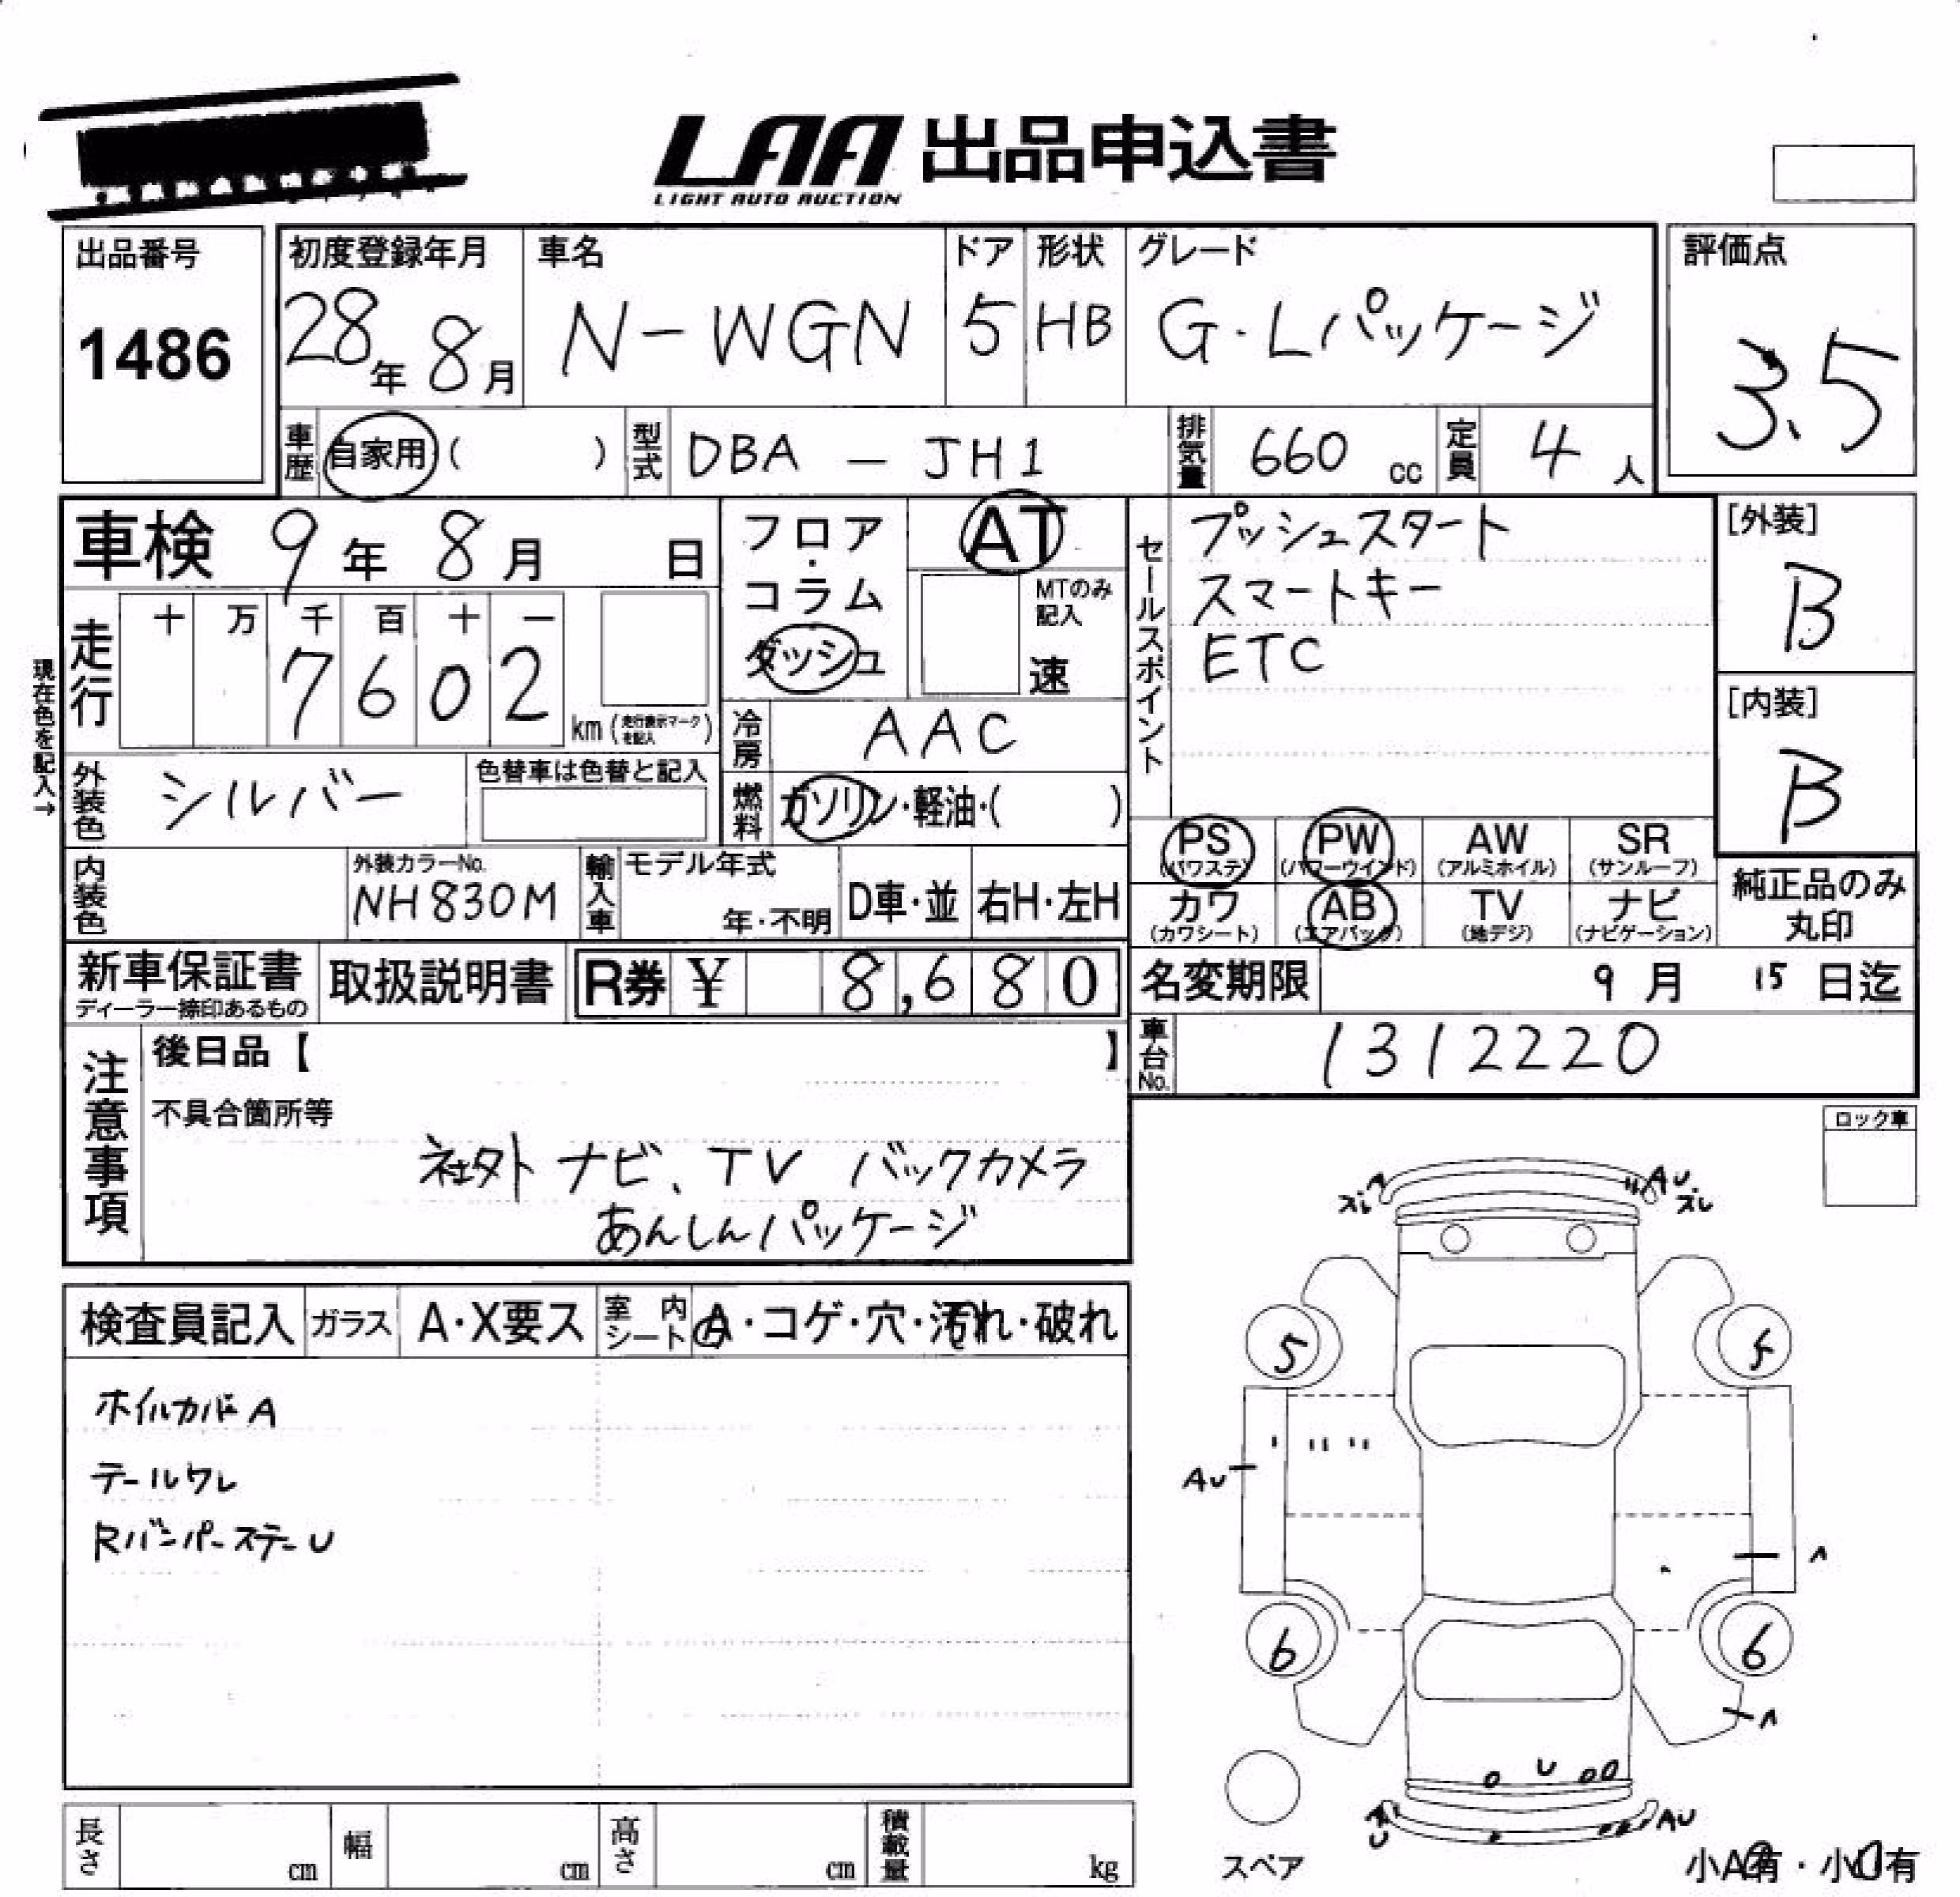 LAA 出品申込書
LIGHT AUTO AUCTION
出品番号
1486
初度登録年月
28年 8月
車名
N-WGN
ドア
5
形状
HB
グレード
G・Lパッケージ
評価点
3.5
車歴 自家用 ( )
型式 DBA - JH1
排気量 660 cc
定員 4 人
車検 9年 8月 日
フロア・コラム ダッシュ
AT
MTのみ記入
速
走行
十 万 千 百 十 一
7 6 0 2
km (走行表示マークを記入)
現在色を記入→
冷房 AAC
燃料 ガソリン・軽油・( )
外装色 シルバー
色替車は色替と記入
内装色
外装カラーNo.
NH830M
輸入車
モデル年式
年・不明
D車・並
右H・左H
セールスポイント
プッシュスタート
スマートキー
ETC
[外装]
B
[内装]
B
PS (パワステ)
PW (パワーウインド)
AW (アルミホイル)
SR (サンルーフ)
カワ (カワシート)
AB (エアバック)
TV (地デジ)
ナビ (ナビゲーション)
純正品のみ
丸印
新車保証書
ディーラー捺印あるもの
取扱説明書
R券 ¥ 8,680
名変期限 9月 15日迄
車台No. 1312220
注意事項
後日品【 】
不具合箇所等
社外 ナビ、TV バックカメラ
あんしんパッケージ
ロック車
検査員記入
ガラス A・X要ス
室内シート A・コゲ・穴・汚れ・破れ
ホイルカバA
テールワレ
Rバンパーステー U
ズレ
AU
ズレ
5
5
AU
A
6
6
A
U
U
AU
スペア
小A有・小U有
長さ cm
幅 cm
高さ cm
積載量 kg